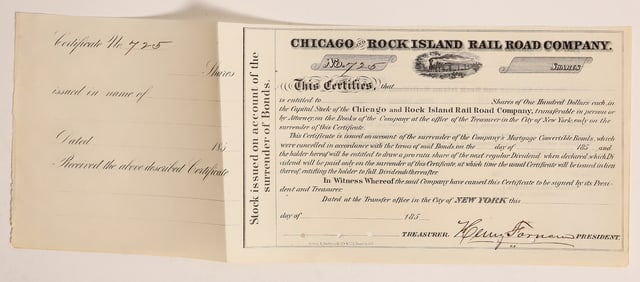 Certificate No 725
Shares
issued in name of
Dated 185
Received the above described Certificate
Stock issued on account of the
surrender of Bonds.
CHICAGO AND ROCK ISLAND RAIL ROAD COMPANY.
No. 725 SHARES
This Certifies, that
is entitled to Shares of One Hundred Dollars each, in
the Capital Stock of the Chicago and Rock Island Rail Road Company, transferable in person or
by Attorney, on the Books of the Company at the office of the Treasurer in the City of New York only on the
surrender of this Certificate.
This Certificate is issued on account of the surrender of the Company's Mortgage Convertible Bonds, which
were cancelled in accordance with the terms of said Bonds, on the day of 185 and
the holder hereof will be entitled to draw a pro rata share of the next regular Dividend, when declared, which Di
vidend will be paid only on the surrender of this Certificate, at which time the usual Certificate will be issued in lieu
thereof, entitling the holder to full Dividends thereafter.
In Witness Whereof the said Company have caused this Certificate to be signed by its Presi-
dent and Treasurer.
Dated at the Transfer office in the City of NEW YORK this
day of 185
TREASURER. Henry Farnam PRESIDENT.